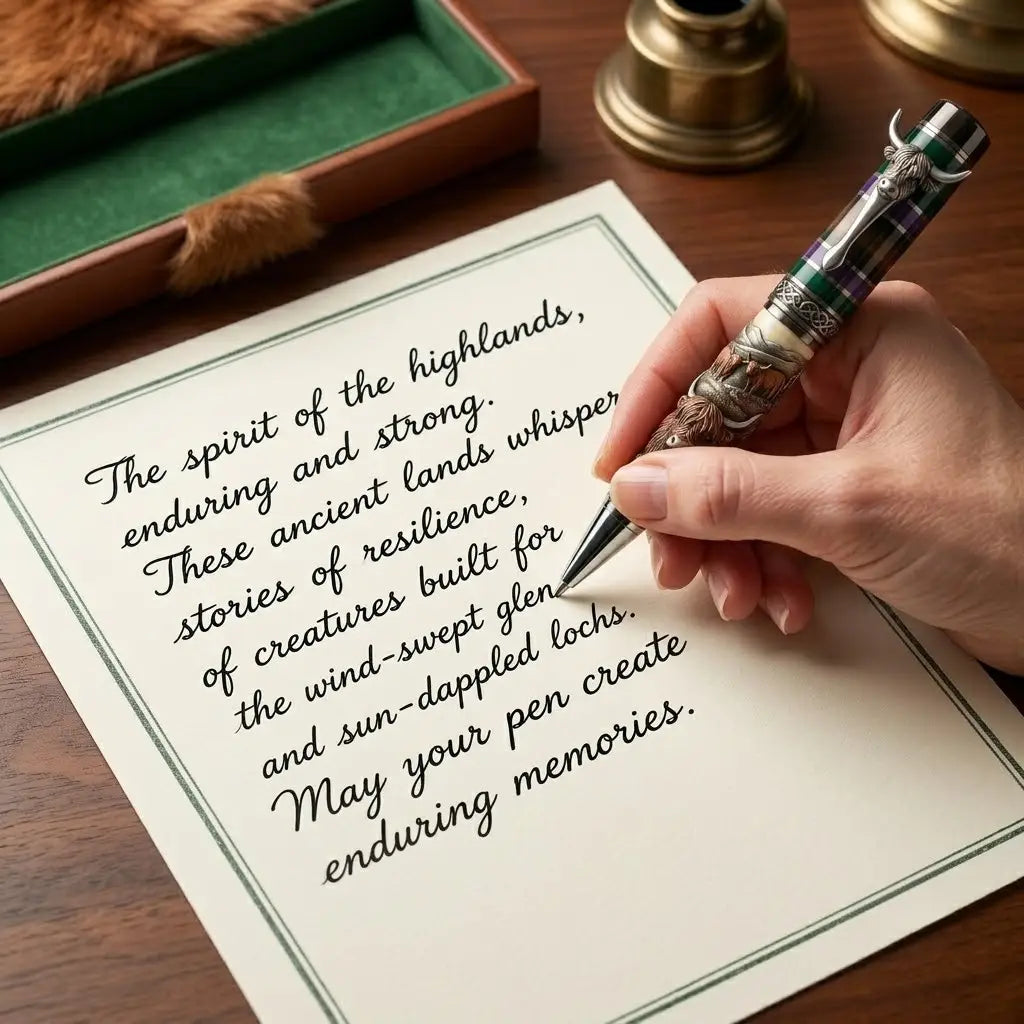 The spirit of the highlands,
enduring and strong.
These ancient lands whisper
stories of resilience,
of creatures built for
the wind-swept glen
and sun-dappled lochs.
May your pen create
enduring memories.